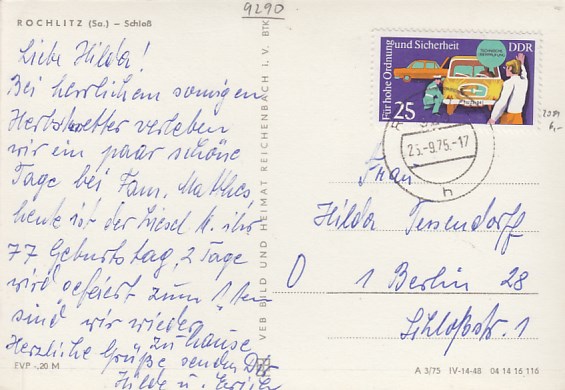 9290
ROCHLITZ (Sa.) – Schloß
Liebe Hilda!
Bei herrlichem sonnigen
Herbstwetter verleben
wir ein paar schöne
Tage bei Fam. Matthes,
heute ist der Liesel K. ihr
77 Geburtstag, 2 Tage
wird gefeiert zum 1ten
sind wir wieder
zu hause
Herzliche Grüße senden Dir
Hilde u.
EVP -,20 M
VEB BILD UND HEIMAT REICHENBACH I. V. BTK
Für hohe Ordnung und Sicherheit
DDR
25
23.-9.75.-17
h
Frau
Hilda Tessendorff
1 Berlin 28
Schloßstr. 1
A 3/75 IV-14-48 04 14 16 116